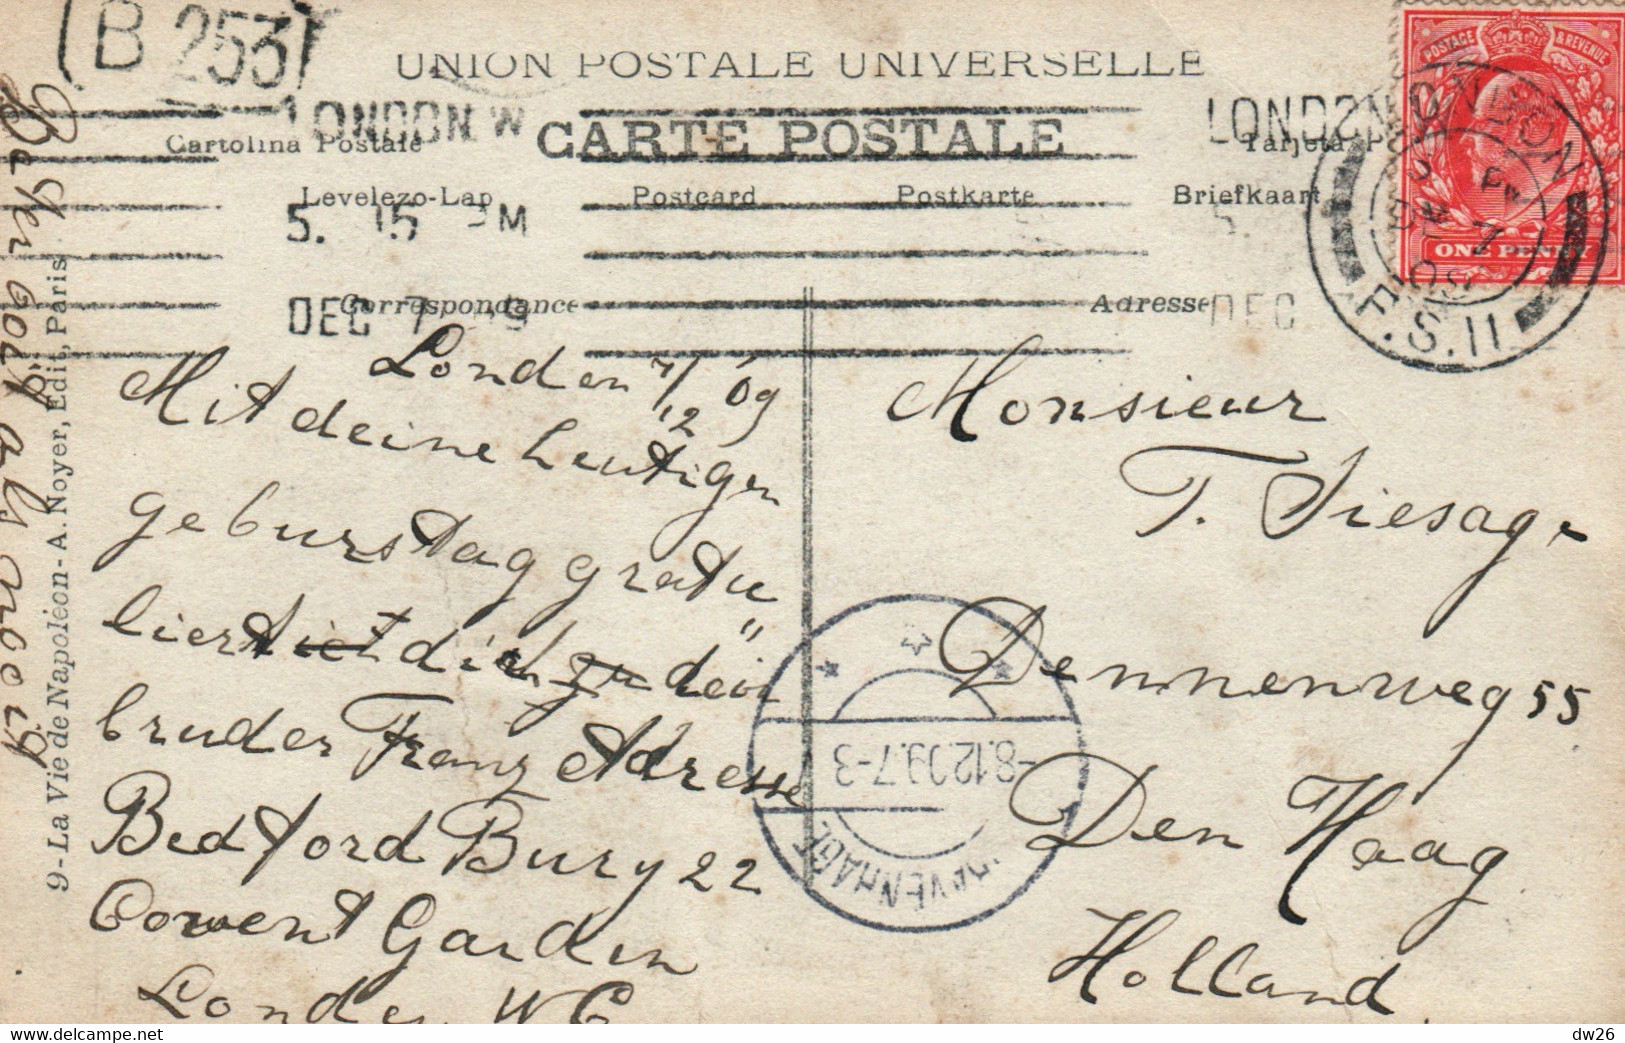 B 253
UNION POSTALE UNIVERSELLE
LONDON W
CARTE POSTALE
LONDON
Cartolina Postale
Tarjeta
Levelezo-Lap
Postcard
Postkarte
Briefkaart
5. 15 PM
DEC 7
Correspondance
Adresse
DEC
POSTAGE & REVENUE
ONE PENNY
LONDON
F.S. 11
London 7/12 09
Mit deine heutigen
geburstag gratu
liert dich dein
bruder Franz Adresse
Bedford Bury 22
Cowent Garden
London WC
Monsieur
T. Siesage
Dennenweg 55
Den Haag
Holland
-8.12.09.7-3
'S GRAVENHAGE
9 - La Vie de Napoléon - A. Noyer, Edit, Paris
dw26